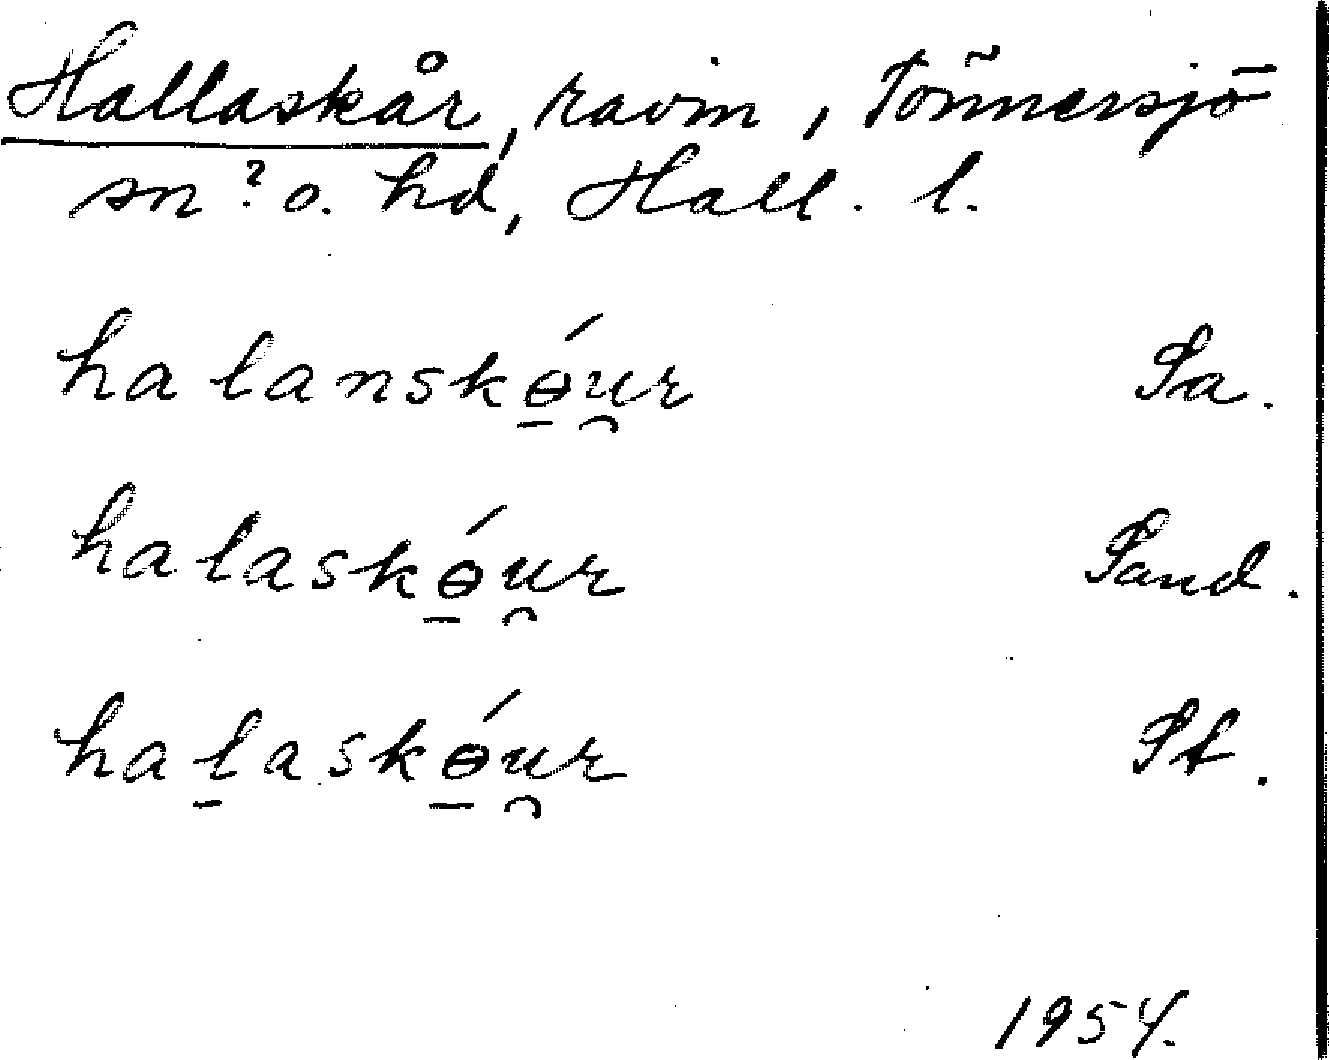 Hallaskår, ravin, Tönnersjö
sn? o. hd, Hall. l.
halanskɵ̠́u̯r Sa.
halaskɵ̠́u̯r Sand.
hal̠askɵ̠́u̯r St.
1954.